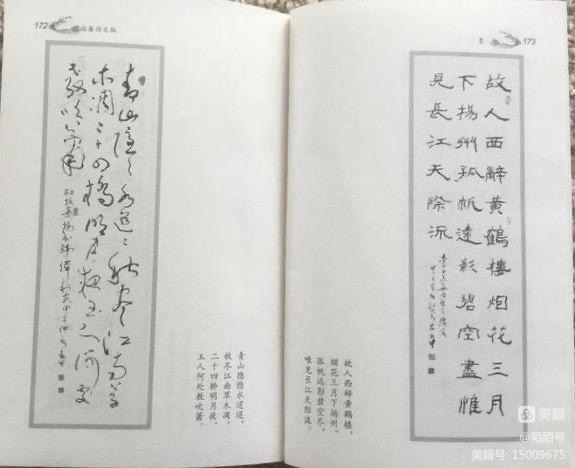 172
斋诗文稿
青山隐々水迢々秋尽江南草
木凋二十四橋明月夜玉人何处
教吹箫
青山隐隐水迢迢，
秋尽江南草木凋。
二十四桥明月夜，
玉人何处教吹箫。
173
故人西辭黄鶴樓烟花三月
下揚州孤帆遠影碧空盡惟
見長江天際流
故人西辞黄鹤楼，
烟花三月下扬州。
孤帆远影碧空尽，
唯见长江天际流。
美篇
@陌陌号
美篇号: 15009675